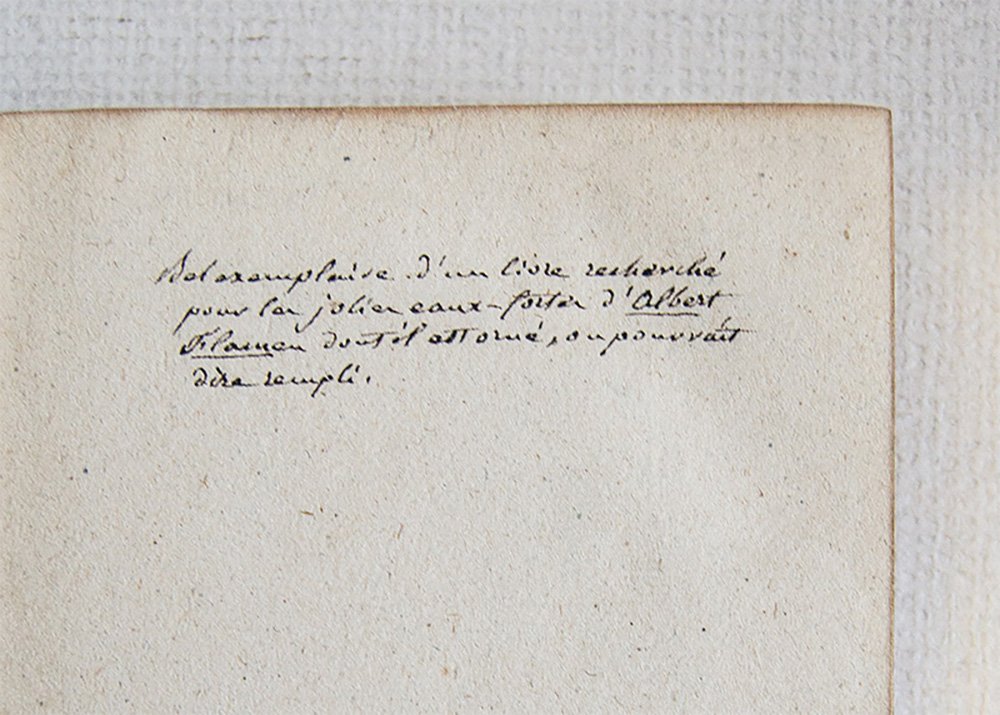 Bel exemplaire d'un livre recherché
pour les jolies eaux-fortes d'Albert
Flamen dont il est orné, on pourrait
dire rempli.